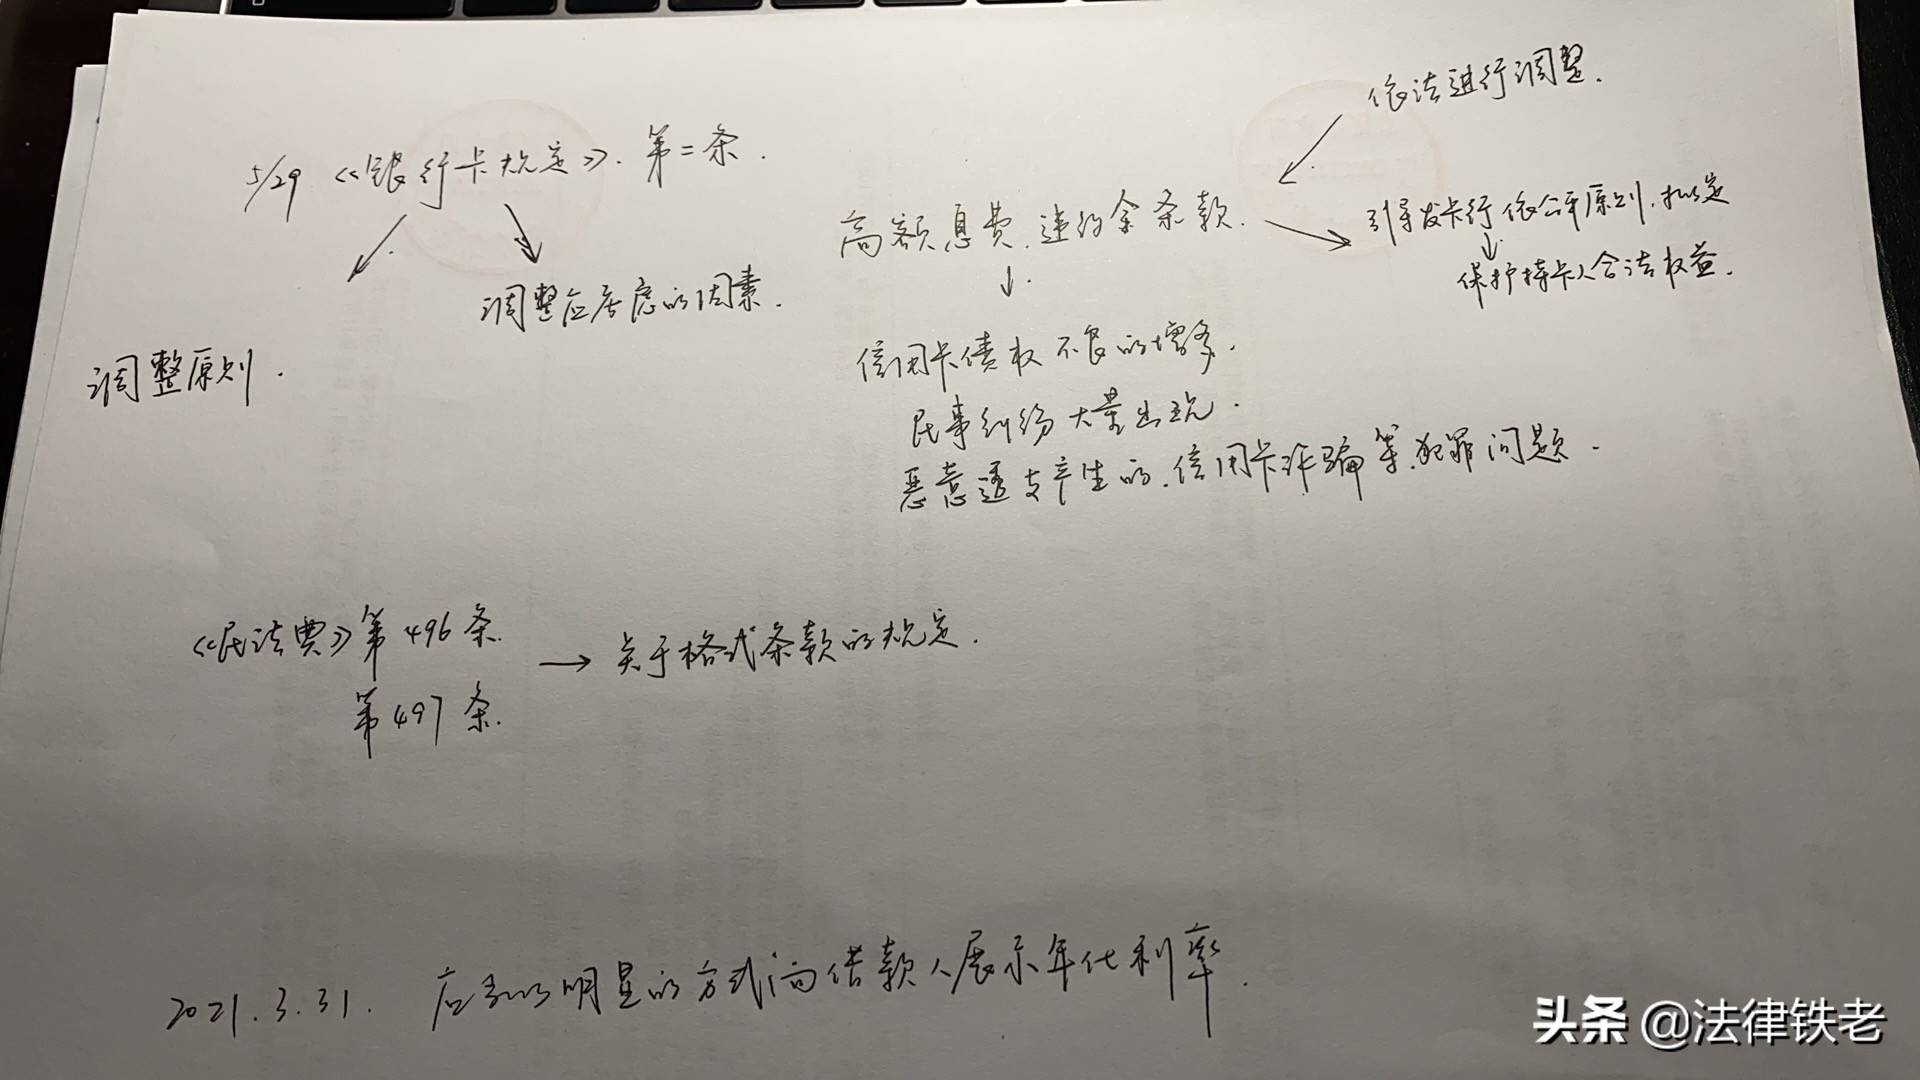 5/29 《银行卡规定》. 第二条.
调整应考虑的因素.
调整原则.
依法进行调整.
高额息费. 违约金条款.
引导发卡行依公平原则. 拟定
保护持卡人合法权益.
信用卡债权不良的增多.
民事纠纷大量出现.
恶意透支产生的. 信用卡诈骗等. 犯罪问题.
《民法典》第496条.
第497条.
关于格式条款的规定.
2021.3.31. 应当以明显的方式向借款人展示年化利率.
头条 @法律铁老